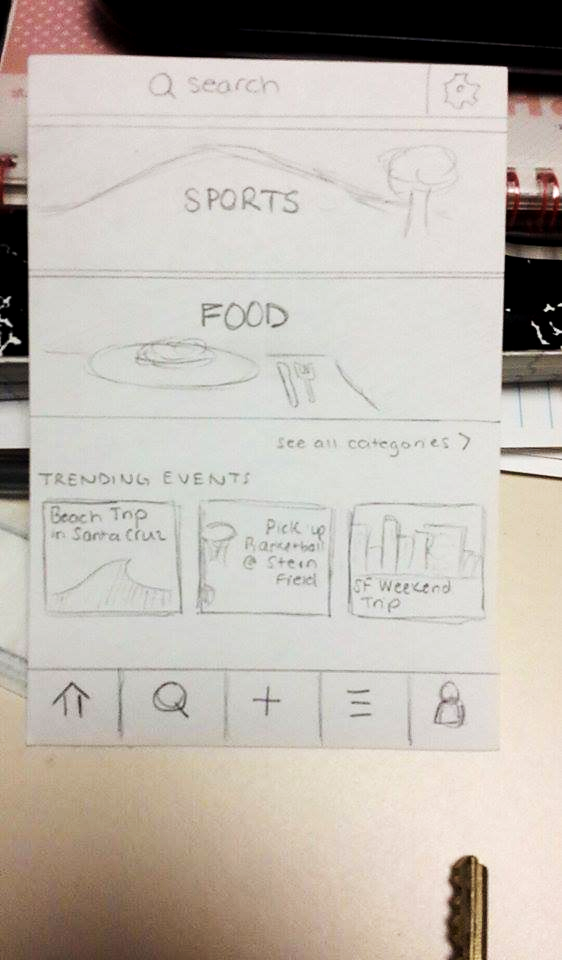 search
SPORTS
FOOD
see all categories >
TRENDING EVENTS
Beach Trip
in Santa Cruz
Pick up
Basketball
@ Stern
Field
SF Weekend
Trip